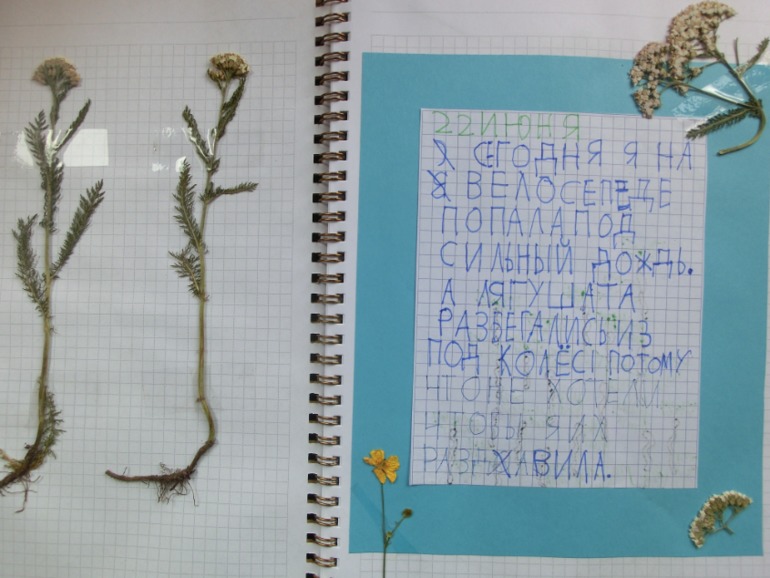 22 ИЮНЯ
СЕГОДНЯ Я НА
ВЕЛОСЕПЕДЕ
ПОПАЛА ПОД
СИЛЬНЫЙ ДОЖДЬ.
А ЛЯГУШАТА
РАЗБЕГАЛИСЬ ИЗ
ПОД КОЛЁС! ПОТОМУ
ЧТО НЕ ХОТЕЛИ
ЧТОБЫ Я ИХ